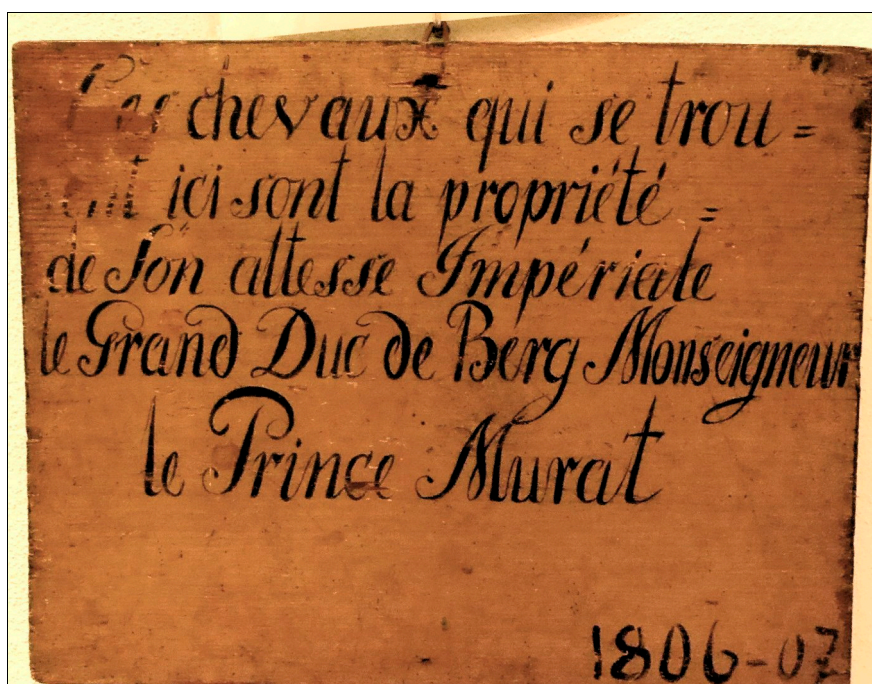 chevaux qui se trou=
vent ici sont la propriété =
de Son altesse Impériale
le Grand Duc de Berg Monseigneur
le Prince Murat
1806-07